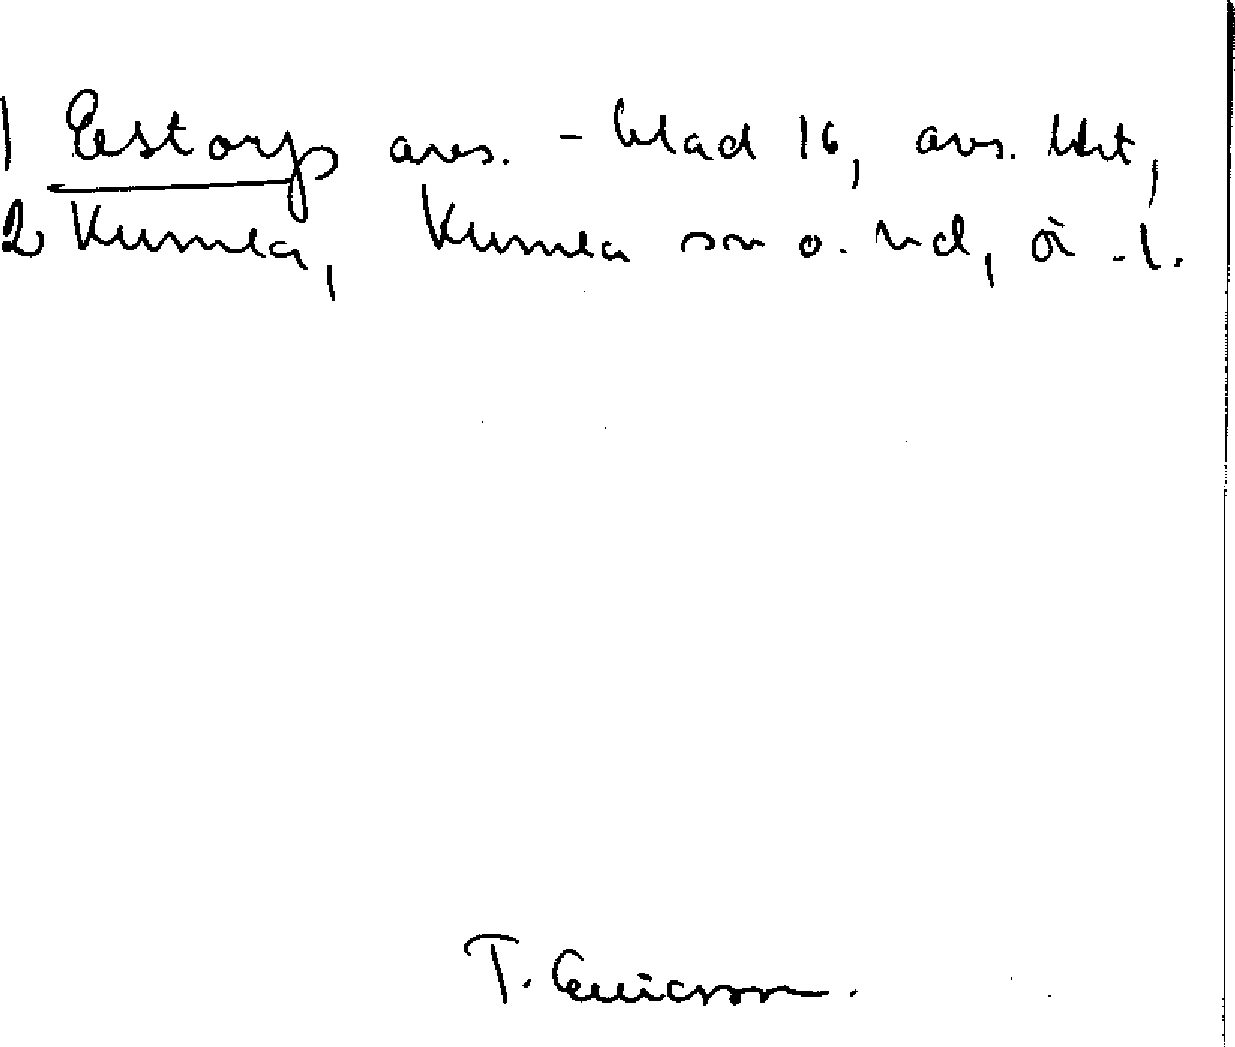 1 Eestorp avs. - blad 16, avs. Utt,
2 Kumla, Kumla sn o. hd, Ö. l.
T. Ericsson.